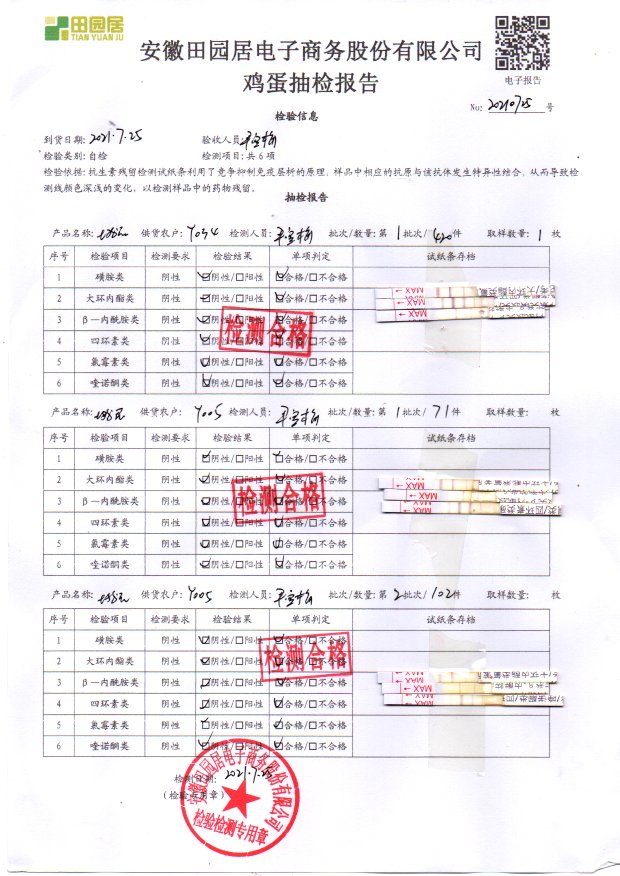 田园居
TIAN YUAN JU
安徽田园居电子商务股份有限公司
鸡蛋抽检报告
电子报告
No: 20210725 号
检验信息
到货日期: 2021.7.25 验收人员:
检验类别: 自检 检测项目: 共6项
检验依据: 抗生素残留检测试纸条利用了竞争抑制免疫层析的原理, 样品中相应的抗原与该抗体发生特异性结合, 从而导致检
测线颜色深浅的变化, 以检测样品中的药物残留。
抽检报告
产品名称: 供货农户: Y034 检测人员: 批次/数量: 第1批次/420件 取样数量: 1 枚
序号 检验项目 检测要求 检验结果 单项判定 试纸条存档
1 磺胺类 阴性 ☑阴性/□阳性 ☑合格/□不合格
2 大环内酯类 阴性 ☑阴性/□阳性 ☑合格/□不合格
3 β—内酰胺类 阴性 ☑阴性/□阳性 ☑合格/□不合格
4 四环素类 阴性 ☑阴性/□阳性 ☑合格/□不合格
5 氯霉素类 阴性 ☑阴性/□阳性 ☑合格/□不合格
6 喹诺酮类 阴性 ☑阴性/□阳性 ☑合格/□不合格
检测合格
MAX
MAX
MAX
产品名称: 供货农户: Y005 检测人员: 批次/数量: 第1批次/71件 取样数量: 枚
序号 检验项目 检测要求 检验结果 单项判定 试纸条存档
1 磺胺类 阴性 ☑阴性/□阳性 ☑合格/□不合格
2 大环内酯类 阴性 ☑阴性/□阳性 ☑合格/□不合格
3 β—内酰胺类 阴性 ☑阴性/□阳性 ☑合格/□不合格
4 四环素类 阴性 ☑阴性/□阳性 ☑合格/□不合格
5 氯霉素类 阴性 ☑阴性/□阳性 ☑合格/□不合格
6 喹诺酮类 阴性 ☑阴性/□阳性 ☑合格/□不合格
检测合格
MAX
MAX
MAX
产品名称: 供货农户: Y005 检测人员: 批次/数量: 第2批次/102件 取样数量: 枚
序号 检验项目 检测要求 检验结果 单项判定 试纸条存档
1 磺胺类 阴性 ☑阴性/□阳性 ☑合格/□不合格
2 大环内酯类 阴性 ☑阴性/□阳性 ☑合格/□不合格
3 β—内酰胺类 阴性 ☑阴性/□阳性 ☑合格/□不合格
4 四环素类 阴性 ☑阴性/□阳性 ☑合格/□不合格
5 氯霉素类 阴性 ☑阴性/□阳性 ☑合格/□不合格
6 喹诺酮类 阴性 ☑阴性/□阳性 ☑合格/□不合格
检测合格
MAX
MAX
MAX
检测日期: 2021.7.25
(检验专用章)
安徽田园居电子商务股份有限公司
检验检测专用章